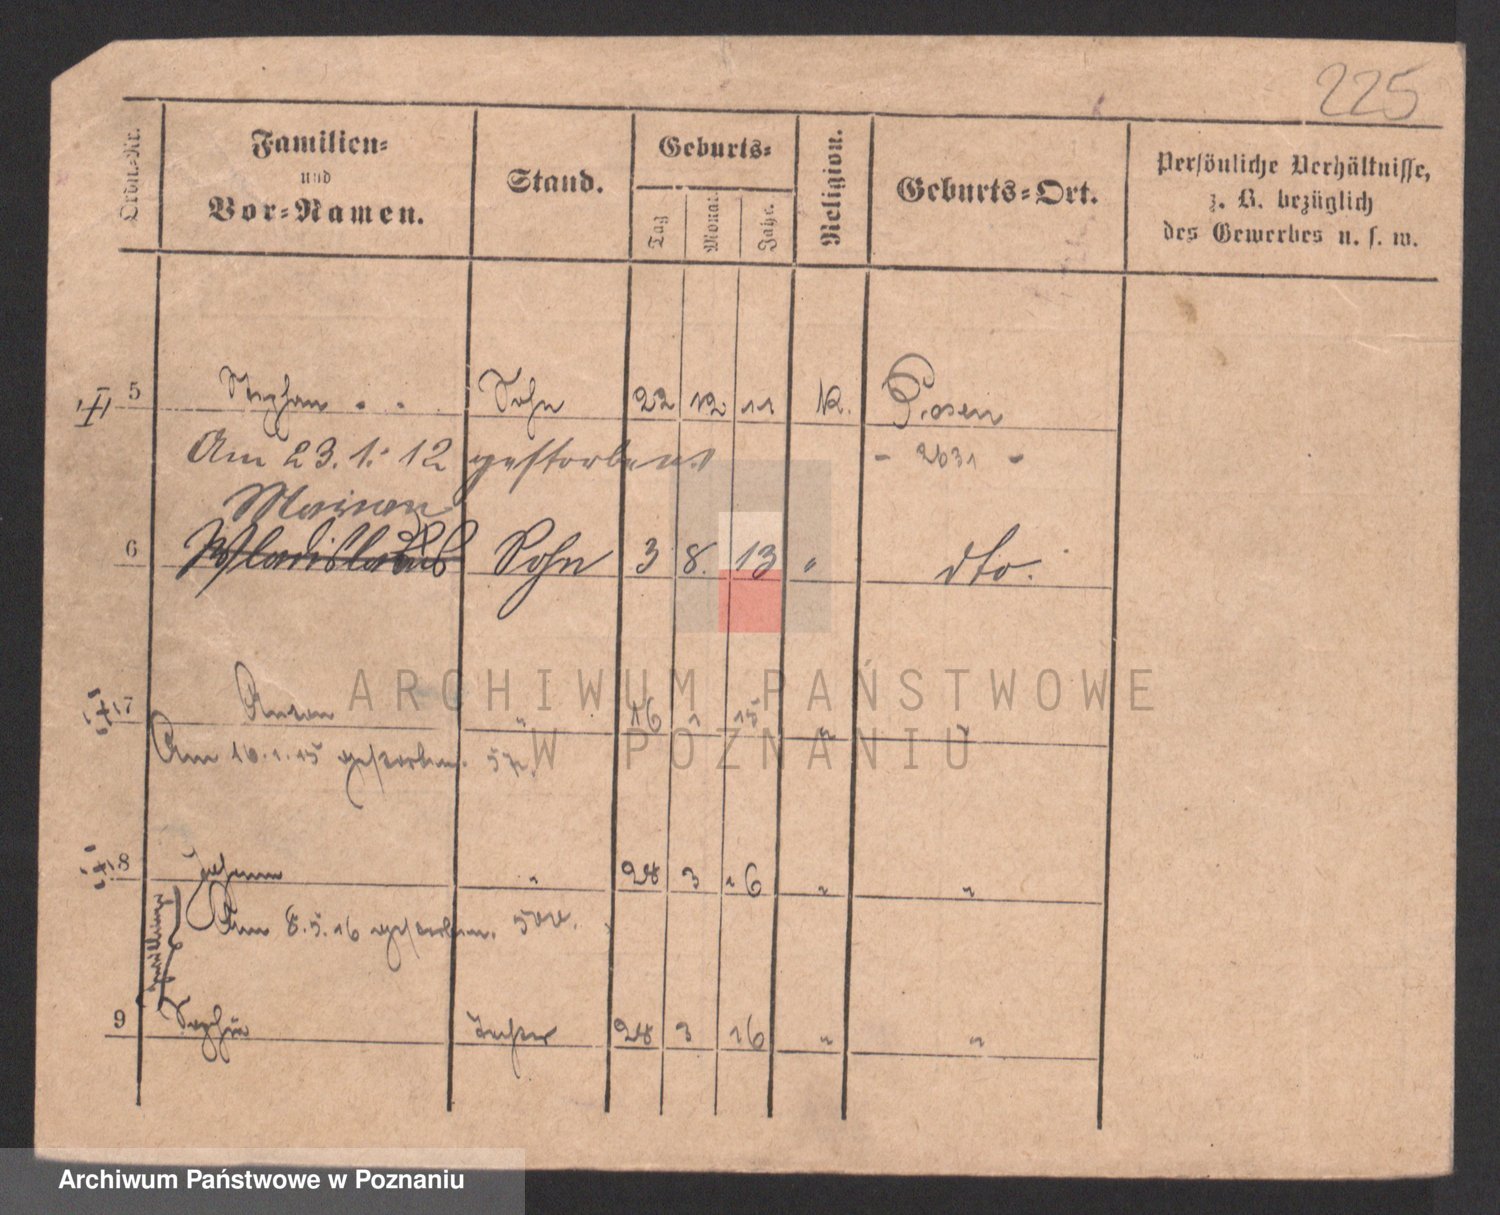 225
Ordn.-Nr. Familien- und Vor-Namen. Stand. Geburts- Tag Monat Jahr. Religion. Geburts-Ort. Persönliche Verhältnisse, z. B. bezüglich des Gewerbes u. s. w.
5 Stephan Sohn 22 12 11 K. Posen
Am 23.1.12 gestorben - 2631 -
Marian
6 Wladislaus Sohn 3 8. 13 " dto.
7 Anton " 16 1 15 " "
Am 16.1.15 gestorben.
8 Johann " 28 3 16 " "
Am 8.5.16 gestorben.
Zwillinge
9 Sophie Tochter 28 3 16 " "
ARCHIWUM PAŃSTWOWE
W POZNANIU
Archiwum Państwowe w Poznaniu